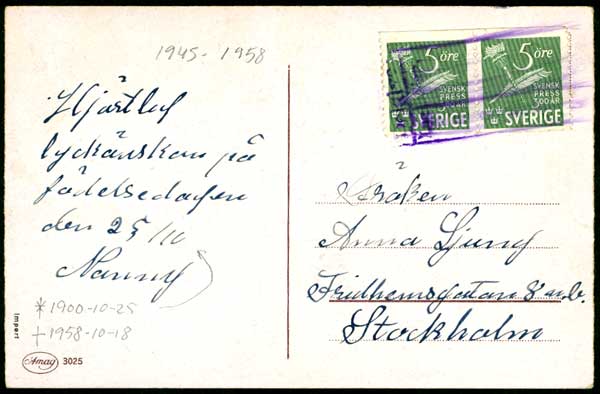 1945-1958
Hjärtlig
lyckönskan på
födelsedagen
den 25/10
Nanny
*1900-10-25
+1958-10-18
Import
Amag 3025
5 öre
SVENSK
PRESS
300 ÅR
SVERIGE
5 öre
SVENSK
PRESS
300 ÅR
SVERIGE
Fröken
Anna Ljung
Fridhemsgatan 8
Stockholm